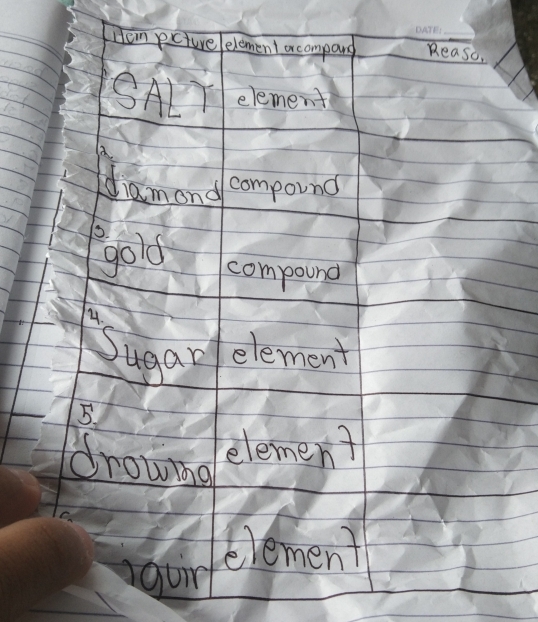 Item picture element or compound Reason
DATE:
1. SALT element
2. diamond compound
3. gold compound
4. Sugar element
5. drowing element
element